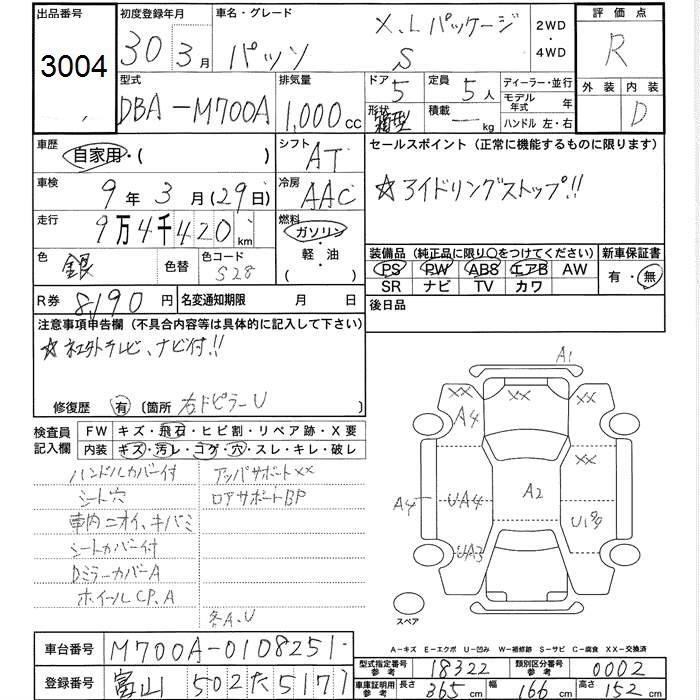 出品番号
3004
初度登録年月
30 3月
車名・グレード
パッソ
X.Lパッケージ
S
2WD
・
4WD
評価点
R
外装 内装
D
型式
DBA-M700A
排気量
1,000cc
ドア 5
形状 箱型
定員 5人
積載 ― kg
ディーラー・並行
モデル年式 年
ハンドル 左・右
車歴
自家用・( )
シフト AT
車検
9年3月(29日)
冷房 AAC
走行
9万4千420km
燃料
ガソリン
・
軽・油
( )
色 銀
色替
色コード S28
R券 8,190円
名変通知期限 月 日
セールスポイント(正常に機能するものに限ります)
☆アイドリングストップ!!
装備品(純正品に限り○をつけてください)
PS PW ABS エアB AW
SR ナビ TV カワ
新車保証書
有・無
後日品
注意事項申告欄(不具合内容等は具体的に記入して下さい)
☆社外テレビ、ナビ付!!
修復歴 有 〔箇所 右ドピラーU 〕
検査員記入欄
FW キズ・飛石・ヒビ割・リペア跡・X要
内装 キズ・汚レ・コゲ・穴・スレ・キレ・破レ
ハンドルカバー付
シート穴
車内ニオイ、キバミ
シートカバー付
Dミラーカバー A
ホイールCP.A
アッパサポートXX
ロアサポートBP
各A.U
A1
XX
XX
XX
A4
XX
A4
UA4
A2
UA3
スペア
A-キズ E-エクボ U-凹み W-補修跡 S-サビ C-腐食 XX-交換済
車台番号 M700A-0108251
登録番号 富山 502 た 5177
型式指定番号 参考 18322
類別区分番号 参考 0002
車庫証明用 参考 長さ 365cm 幅 166cm 高さ 152cm